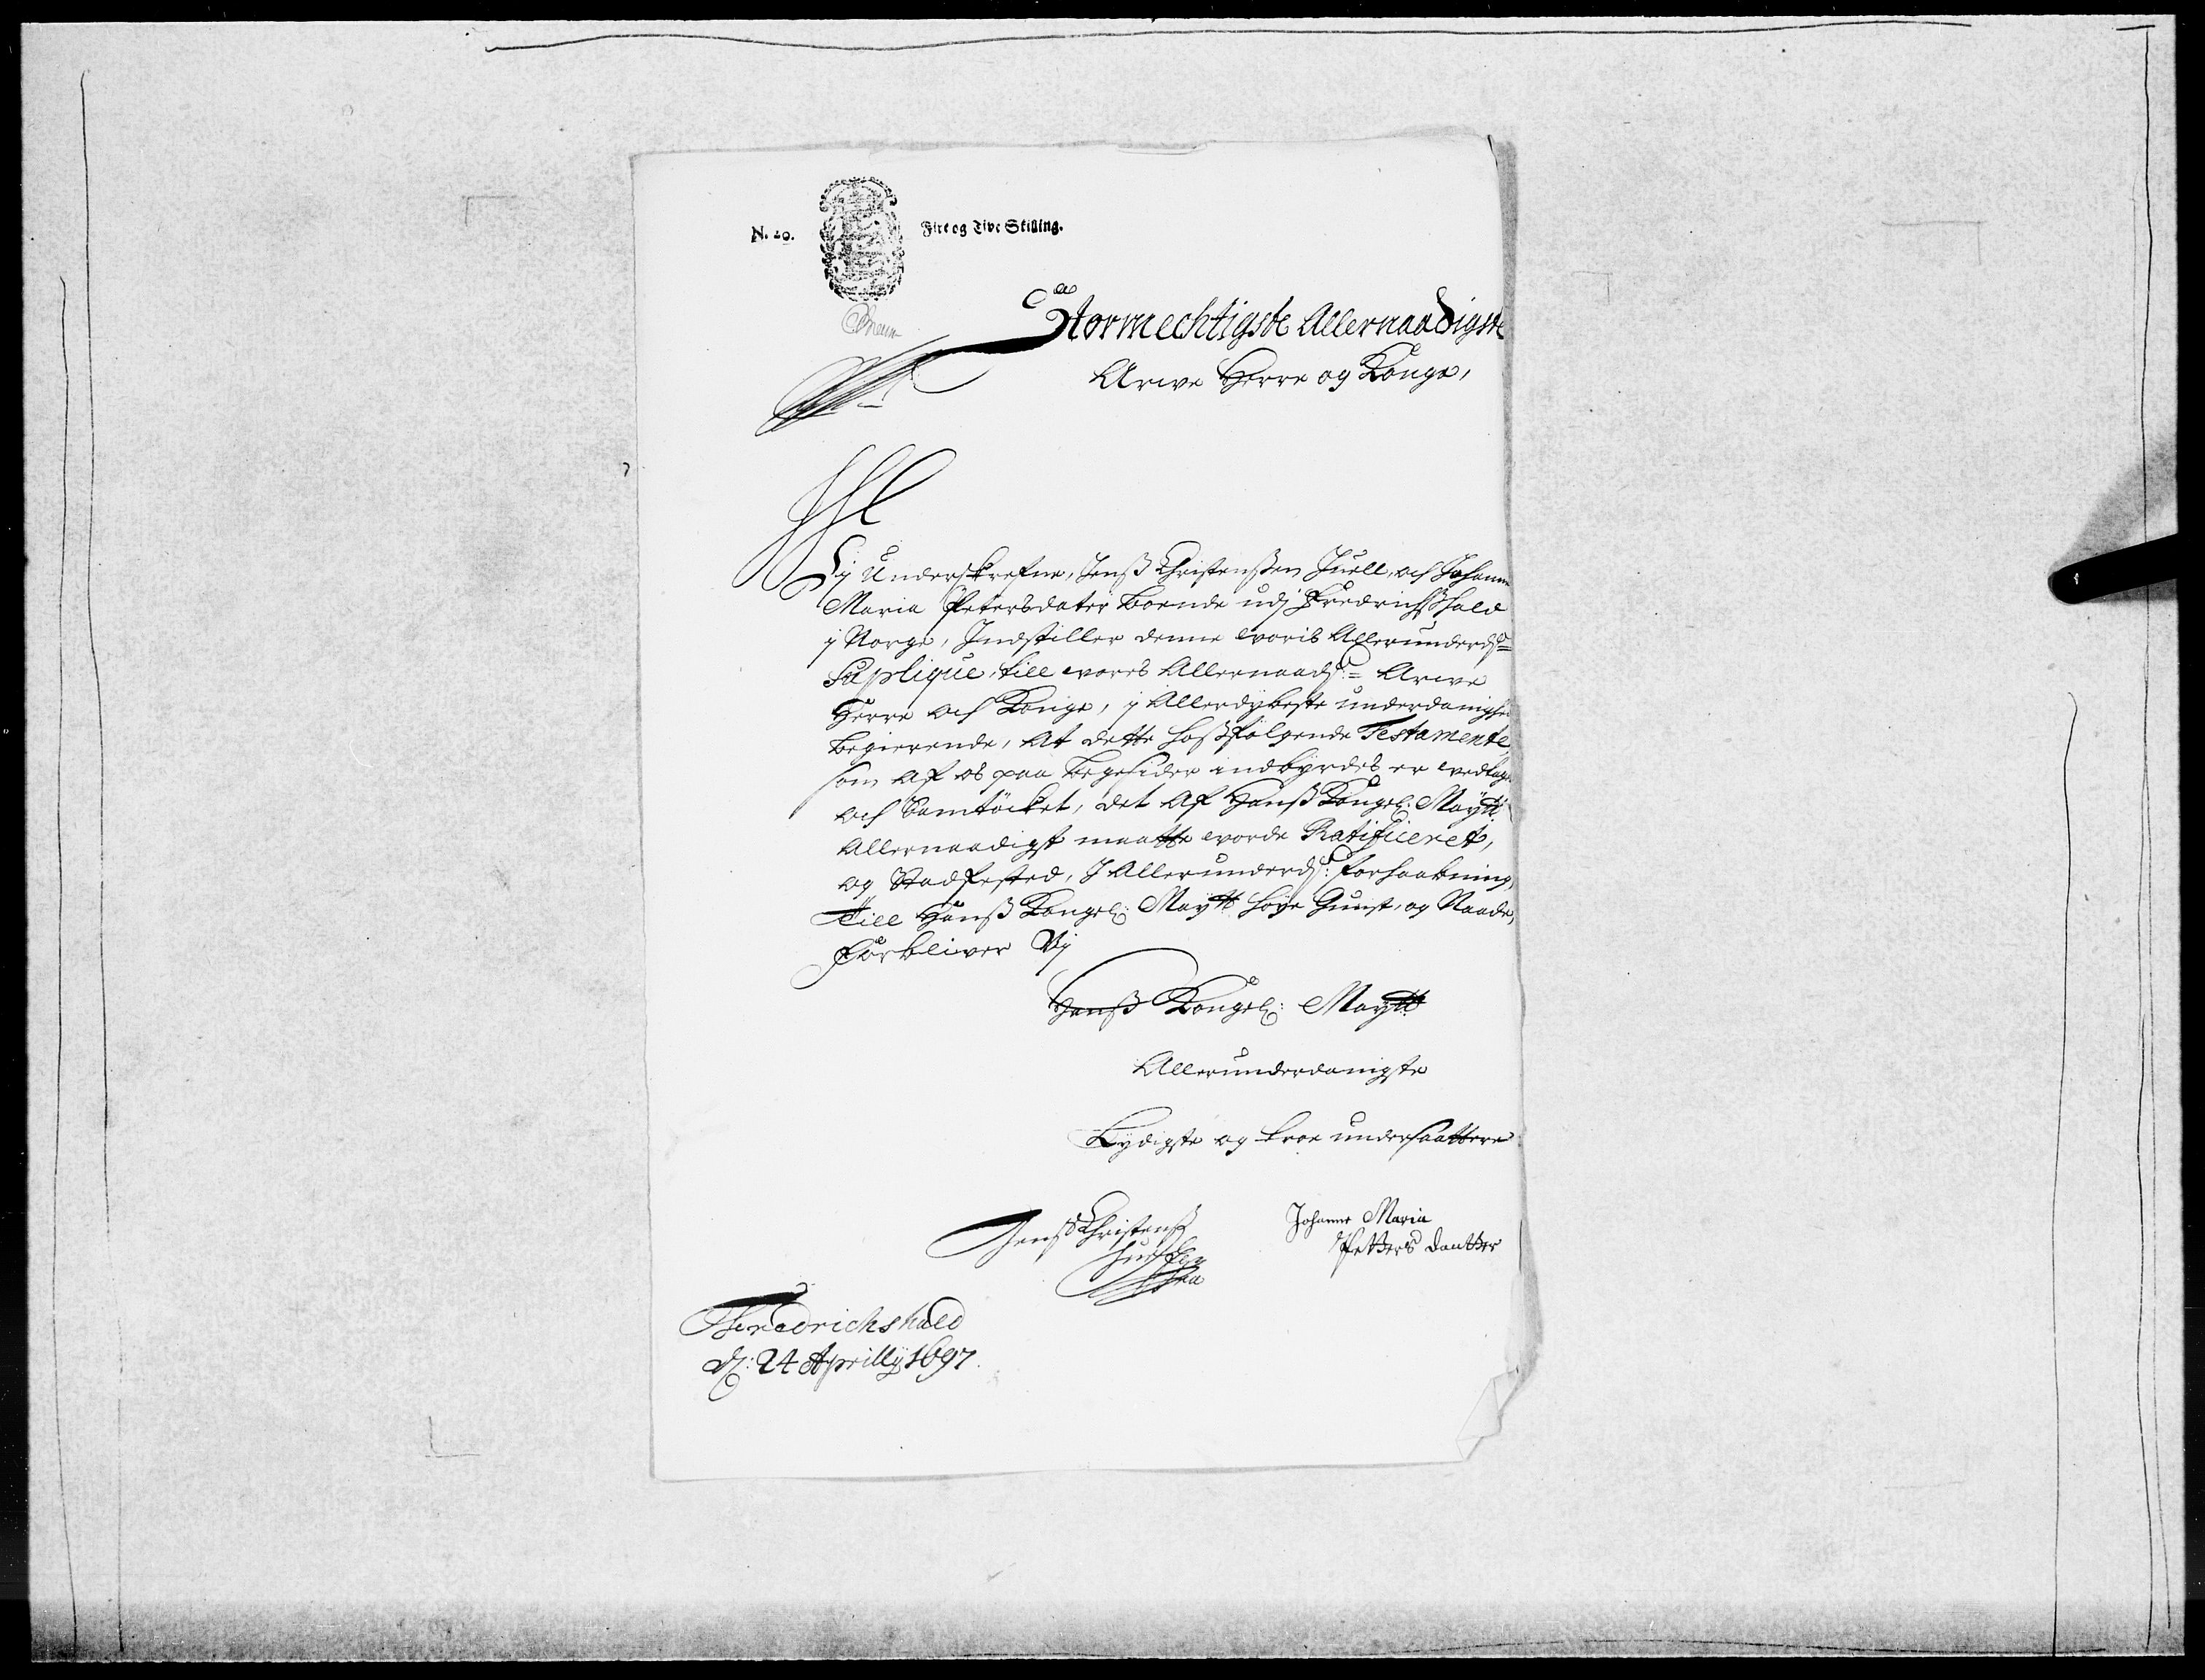 N. 20.
Fire og Tive Skilling.
Stormechtigste Allernaadigste
Arwe Herre og Konge,
Vj Underskrefne, Jenß Christenßen Juell, och Johanne
Maria Petersdater boende udj Fredrichßhald
j Norge, Indstiller denne woris Allerunderdst=
Suplique, till wores Allernaadst:= Arwe
Herre och Konge, j Allerdybeste underdanighed
begierende, At dette hoßfølgende Testamente,
som af os paa begesider indbyrdes er wedtaget
och Samtöcket, det af Hanß Kongel: Maytt
Allernaadigst maatte worde Ratificeret,
og Stadfested, I Allerunderdst: forhaabning,
Till Hanß Kongel: Maytt höye Gunst, og Naade,
forbliwer Vj
Hanß Kongel: Maytt
Allerunderdanigste
Lydigste og troe undersaattere
Jenß Christenß
Johanne Maria
Petters dautter
Fredrichshald
d: 24 Aprillij 1697.